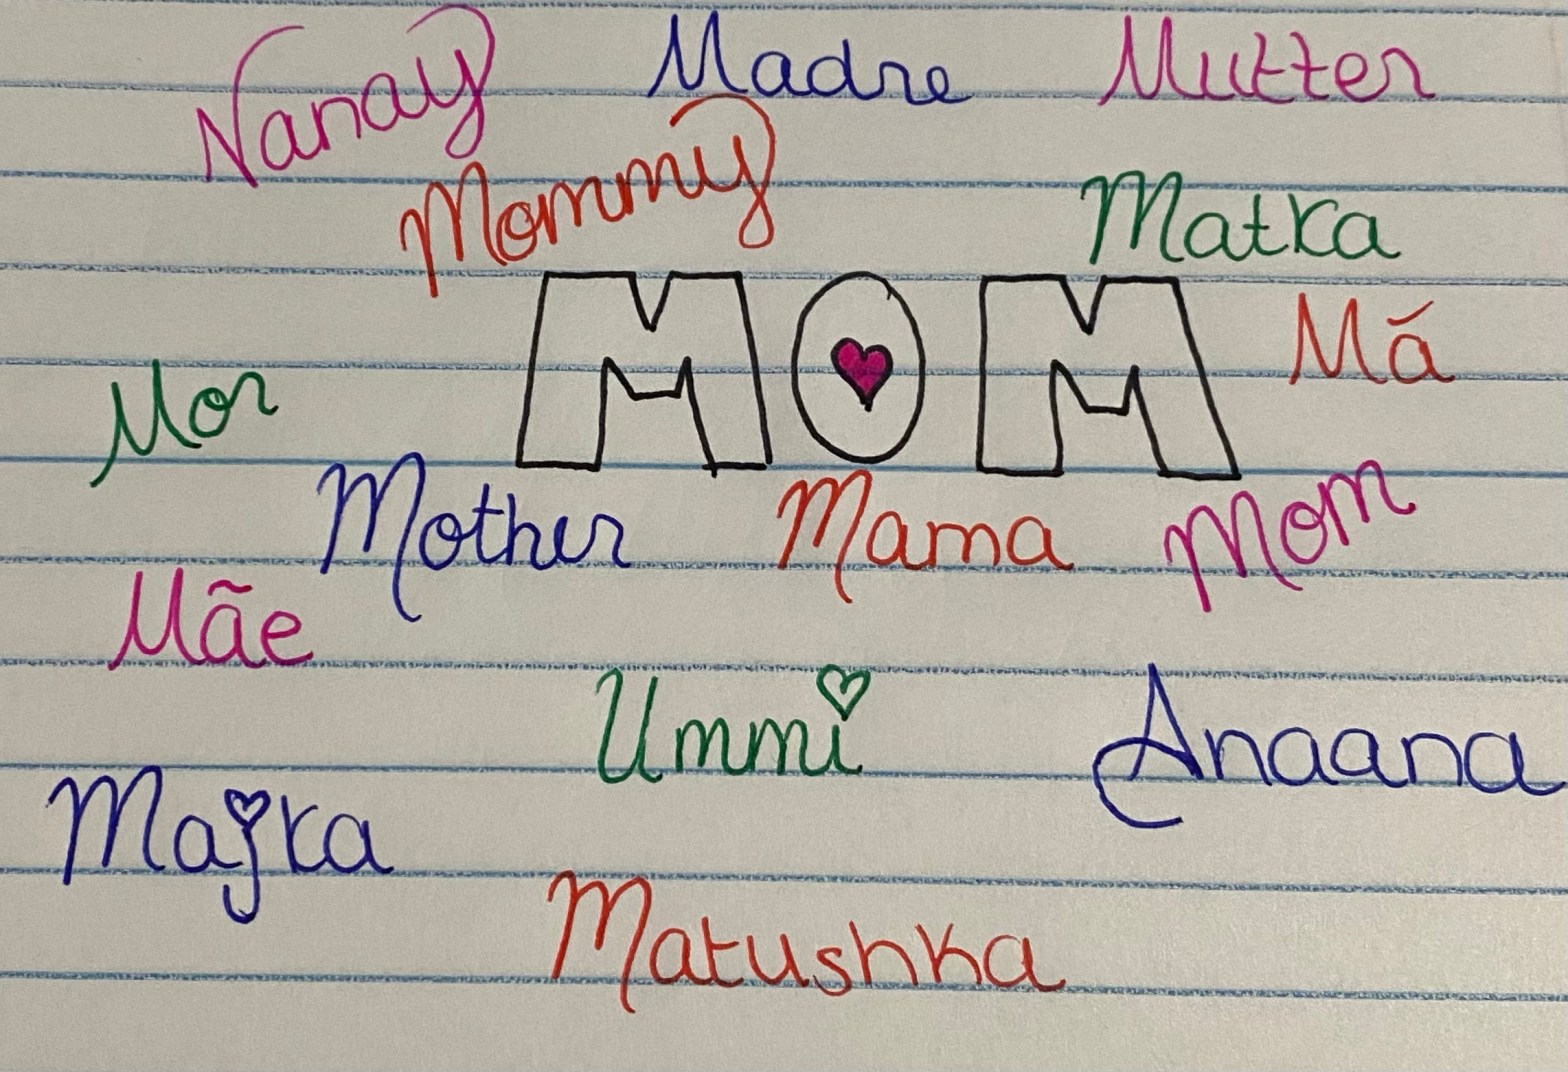 Nanay Madre Mutter
Mommy Matka
MOM Má
Mor
Mother Mama Mom
Mãe
Ummi Anaana
Majka
Matushka